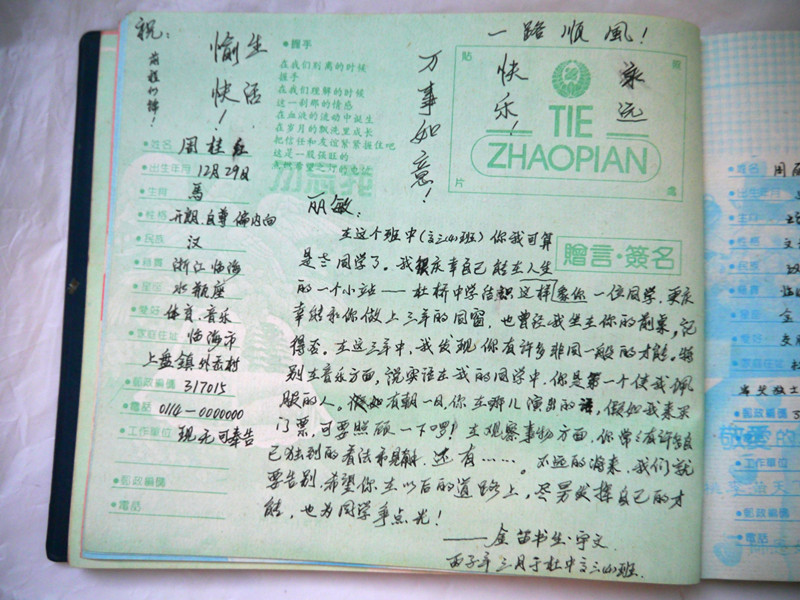 祝:
前程似锦!
愉快
生活!
●握手
在我们别离的时候
握手
在我们理解的时候
这一刹那的情感
在血液的流动中诞生
在岁月的飘洗里成长
把信任和友谊紧紧握住吧
这是一股强旺的
一路順風!
万事如意!
永远
快乐!
貼
照
片
處
TIE
ZHAOPIAN
●姓名 周桂红
●出生年月 12月29日
●生肖 馬
●性格 开朗.自尊.偏内向
●民族 汉
●籍貫 浙江临海
●星座 水瓶座
●愛好 体育.音乐
●家庭住址 临海市
上盘鎮外岙村
●郵政編碼 317015
●電話 0114-0000000
●工作單位 现无可奉告
●郵政編碼
●電話
贈言·簽名
丽敏:
在这个班中(高三(4)班)你我可算
是老同学了。我很庆幸自己能在人生
的一个小站——杜桥中学结识这样象你一位同学,更庆
幸能和你做上三年的同窗,也曾经我坐在你的前桌,记
得否。在这三年中,我发现你有许多非同一般的才能。特
别在音乐方面,说实话在我的同学中,你是第一个使我佩
服的人。假如有朝一日,你在哪儿演出的话,假如我来买
门票,可要照顾一下啰!在观察事物方面,你常常有许多自
己独到的看法和见解.还有……。不远的将来,我们就
要告别,希望你在以后的道路上,尽男发挥自己的才
能,也为同学争点光!
——金笛书生·宇文
丙子年三月于杜中高三(4)班.
敬愛的